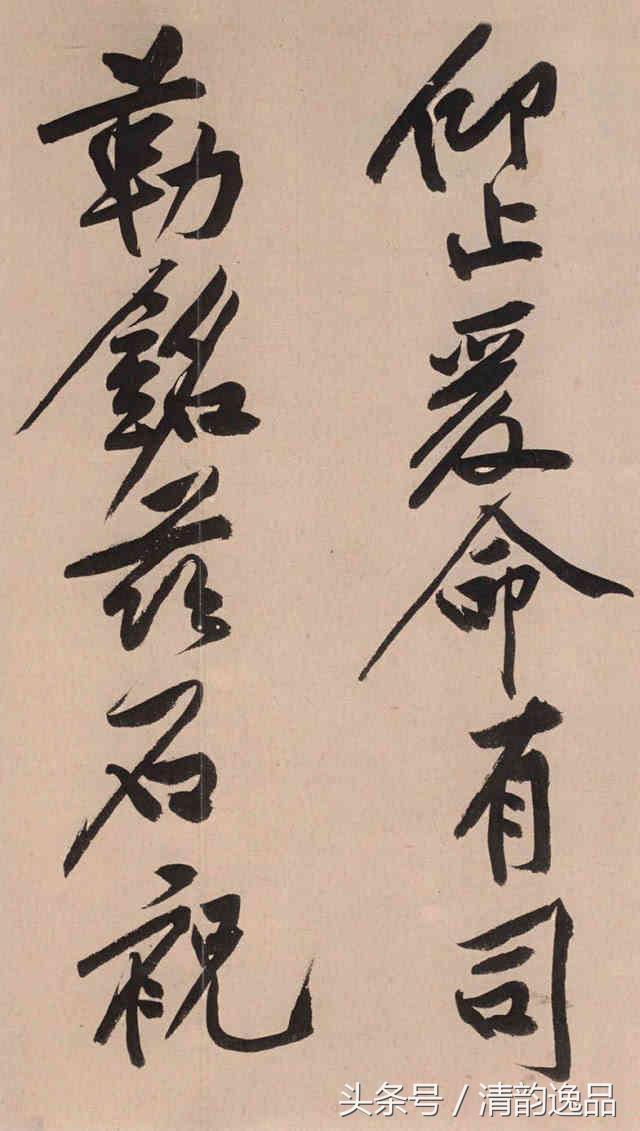 仰止爰命有司
勒銘茲石祝
头条号 / 清韵逸品